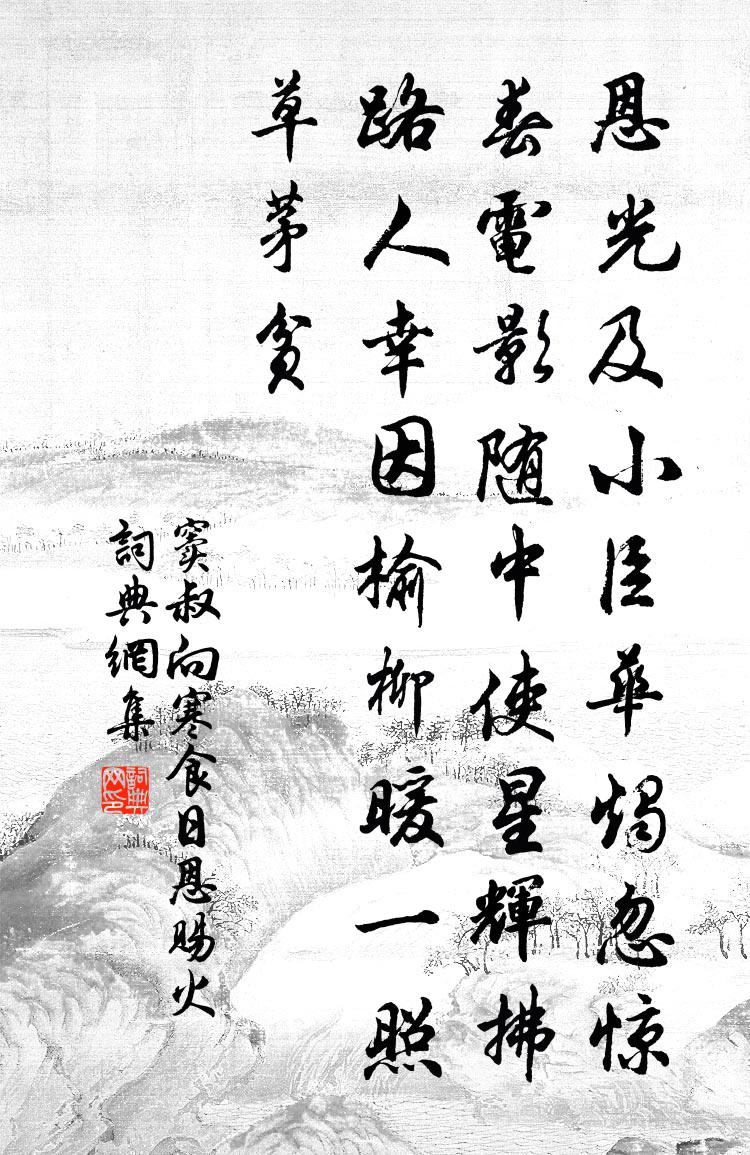 恩光及小臣華燭忽惊
春電影随中使星輝拂
路人幸因榆柳暖一照
草茅贫
窦叔向寒食日恩賜火
詞典網集
詞典网印